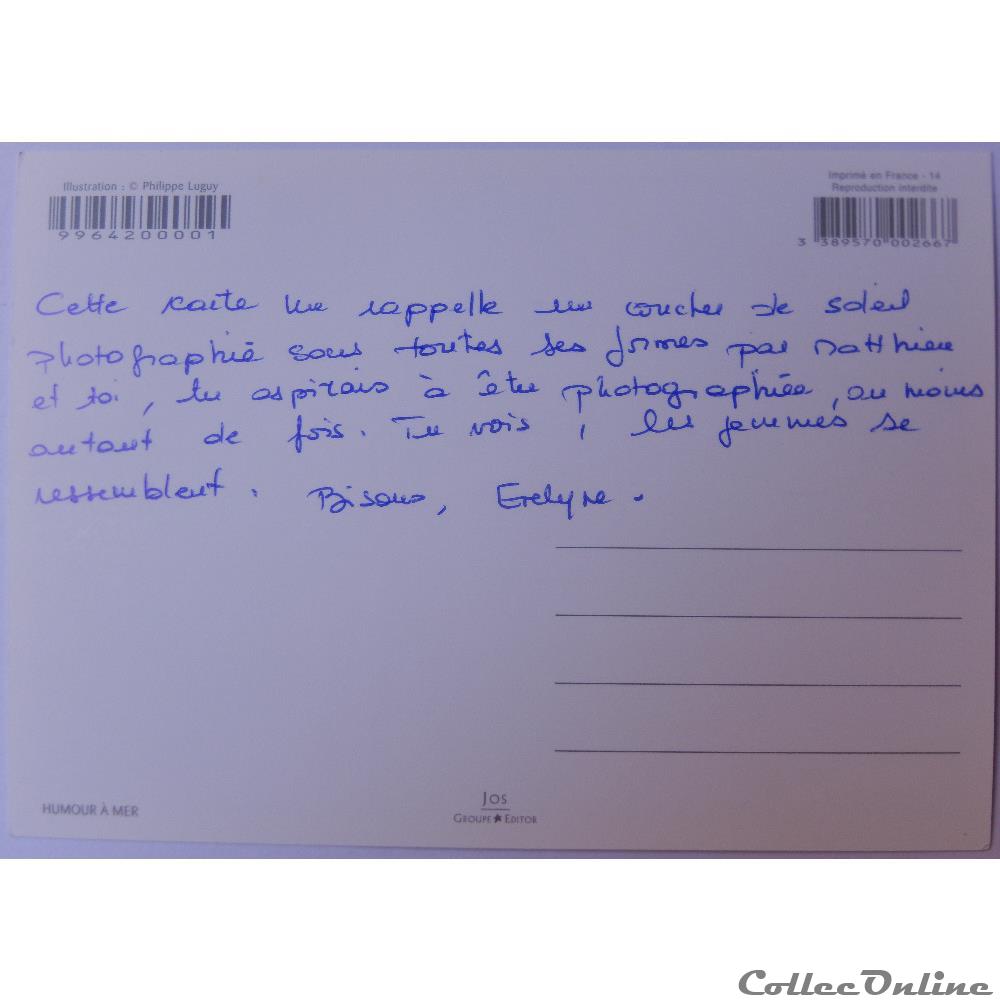 Illustration : © Philippe Luguy
9964200001
Imprimé en France - 14
Reproduction interdite
3 389570 002667
Cette carte me rappelle un coucher de soleil
photographié sous toutes ses formes par Matthieu
et toi, tu aspirais à être photographiée, au moins
autant de fois. Tu vois, les femmes se
ressemblent. Bisous, Evelyne.
HUMOUR À MER
JOS
GROUPE ★ EDITOR
CollecOnline